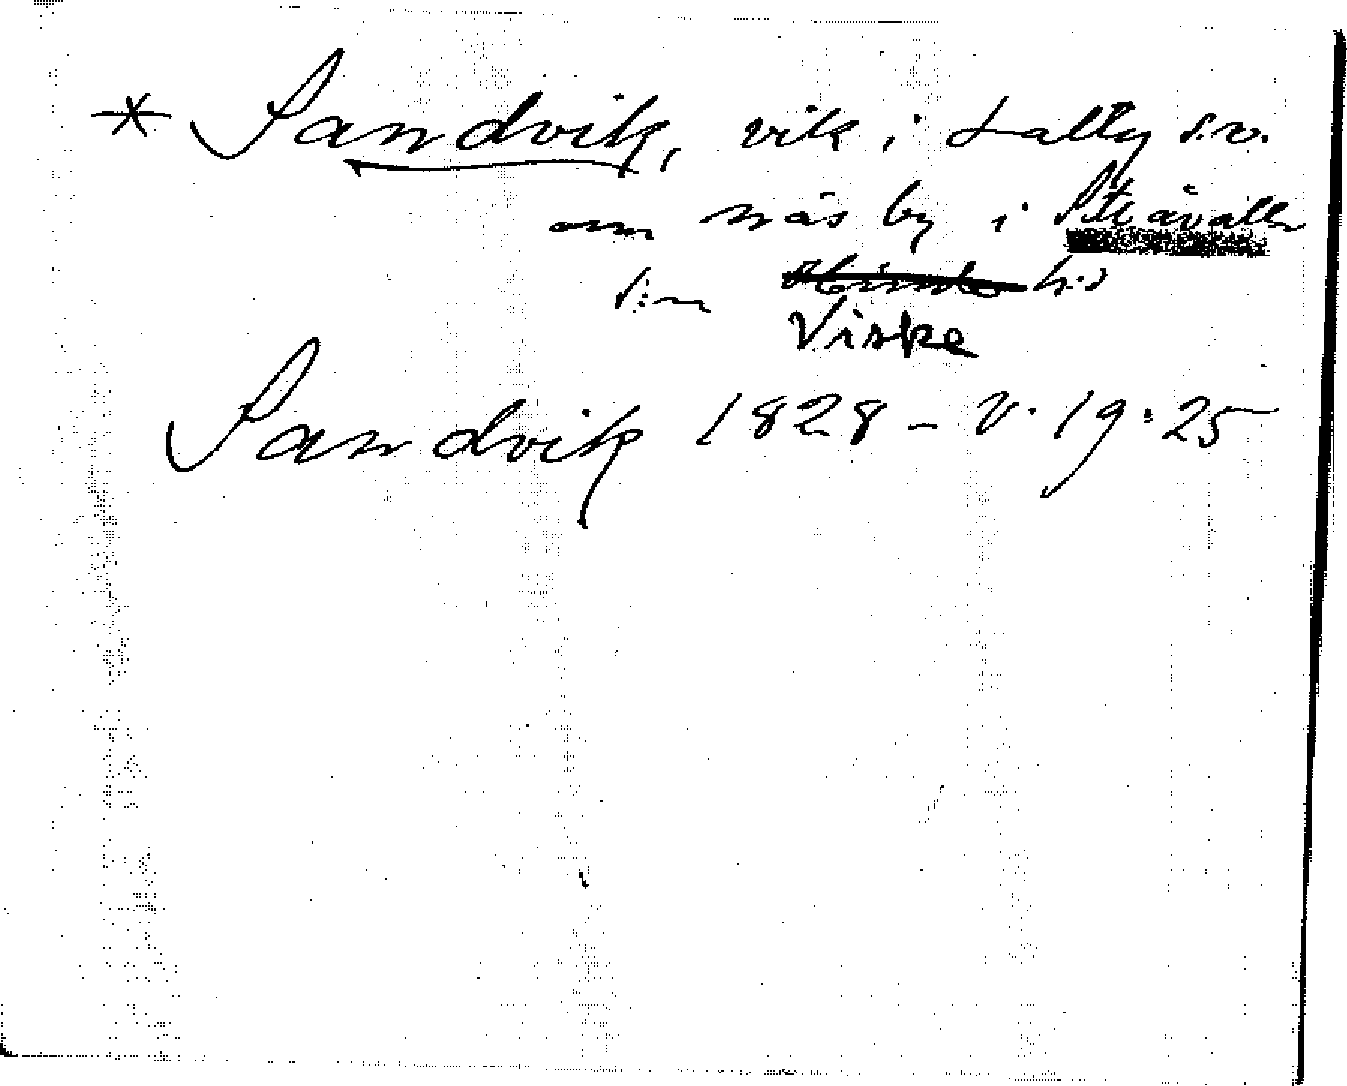 * Sandvik, vik i Lalty s.v.
om näs by i Stråvalla
s:n Himle hd
Viske
Sandvik 1828 – V. 19:25